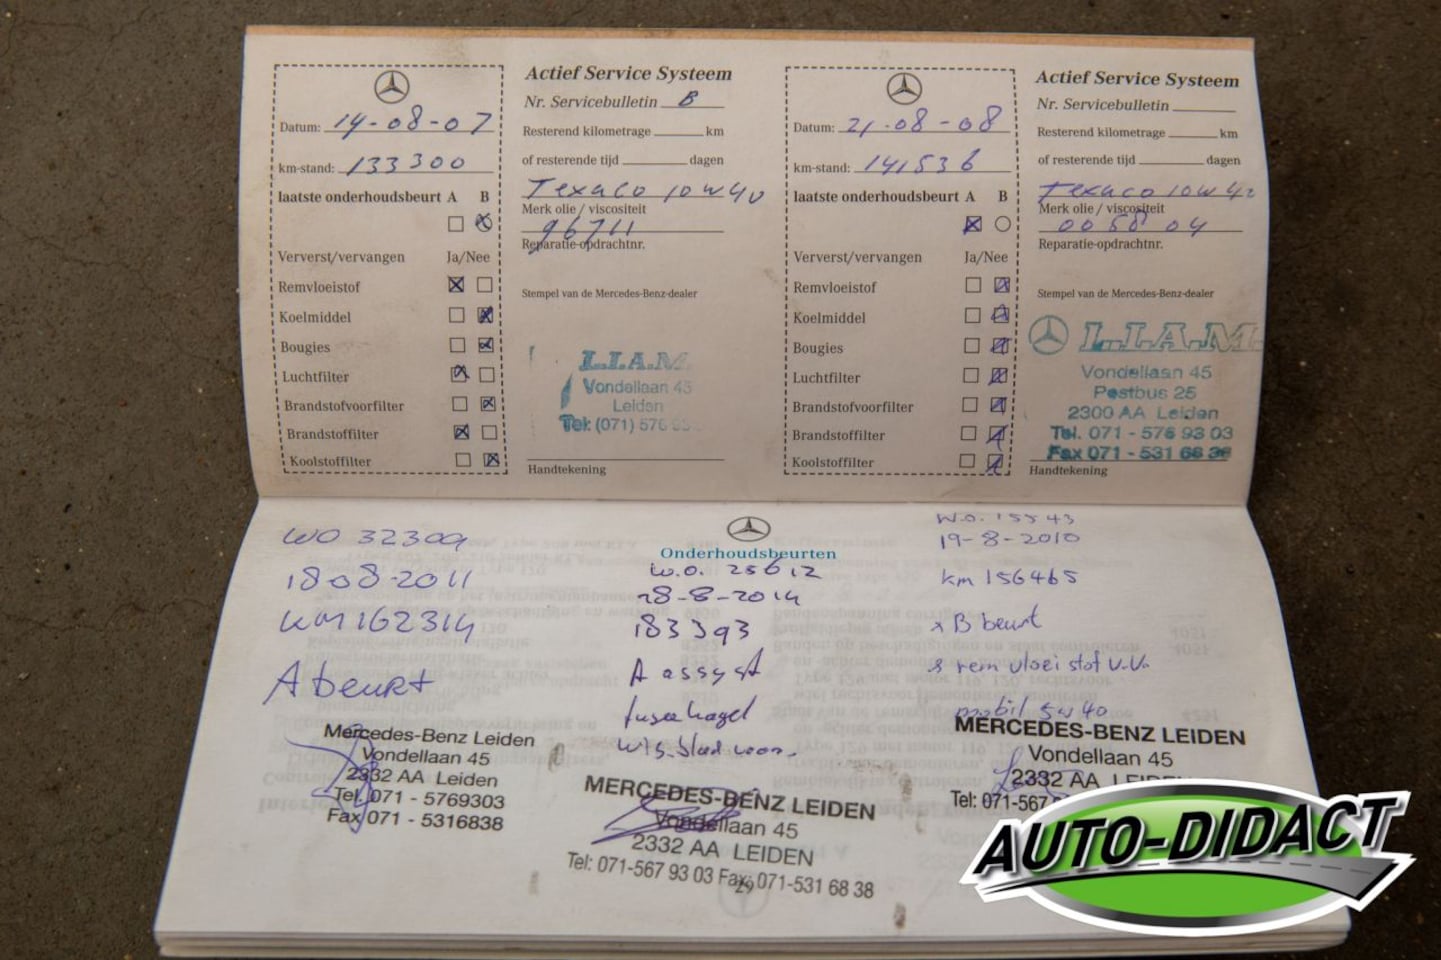 Datum: 14-08-07
km-stand: 133300
laatste onderhoudsbeurt A B
Ververst/vervangen Ja/Nee
Remvloeistof
Koelmiddel
Bougies
Luchtfilter
Brandstofvoorfilter
Brandstoffilter
Koolstoffilter
Actief Service Systeem
Nr. Servicebulletin B
Resterend kilometrage km
of resterende tijd dagen
Texaco 10w40
Merk olie / viscositeit
96711
Reparatie-opdrachtnr.
Stempel van de Mercedes-Benz-dealer
L.I.A.M.
Vondellaan 45
Leiden
Tel: (071) 576
Handtekening
Datum: 21-08-08
km-stand: 141536
laatste onderhoudsbeurt A B
Ververst/vervangen Ja/Nee
Remvloeistof
Koelmiddel
Bougies
Luchtfilter
Brandstofvoorfilter
Brandstoffilter
Koolstoffilter
Actief Service Systeem
Nr. Servicebulletin
Resterend kilometrage km
of resterende tijd dagen
Texaco 10w40
Merk olie / viscositeit
005804
Reparatie-opdrachtnr.
Stempel van de Mercedes-Benz-dealer
L.I.A.M.
Vondellaan 45
Postbus 25
2300 AA Leiden
Tel. 071 - 576 93 03
Fax 071 - 531 68 38
Handtekening
Onderhoudsbeurten
WO 32309
18 08-2011
KM 162314
A beurt
Mercedes-Benz Leiden
Vondellaan 45
2332 AA Leiden
Tel. 071 - 5769303
Fax 071 - 5316838
w.o. 25612
28-8-2014
183393
A assyst
wisblad voor.
MERCEDES-BENZ LEIDEN
Vondellaan 45
2332 AA LEIDEN
Tel: 071-567 93 03 Fax: 071-531 68 38
29
w.o. 15543
19-8-2010
km 156465
x B beurt
x rem vloei stof v.v.
mobil 5w40
MERCEDES-BENZ LEIDEN
Vondellaan 45
2332 AA LEIDEN
Tel: 071-567
AUTO-DIDACT